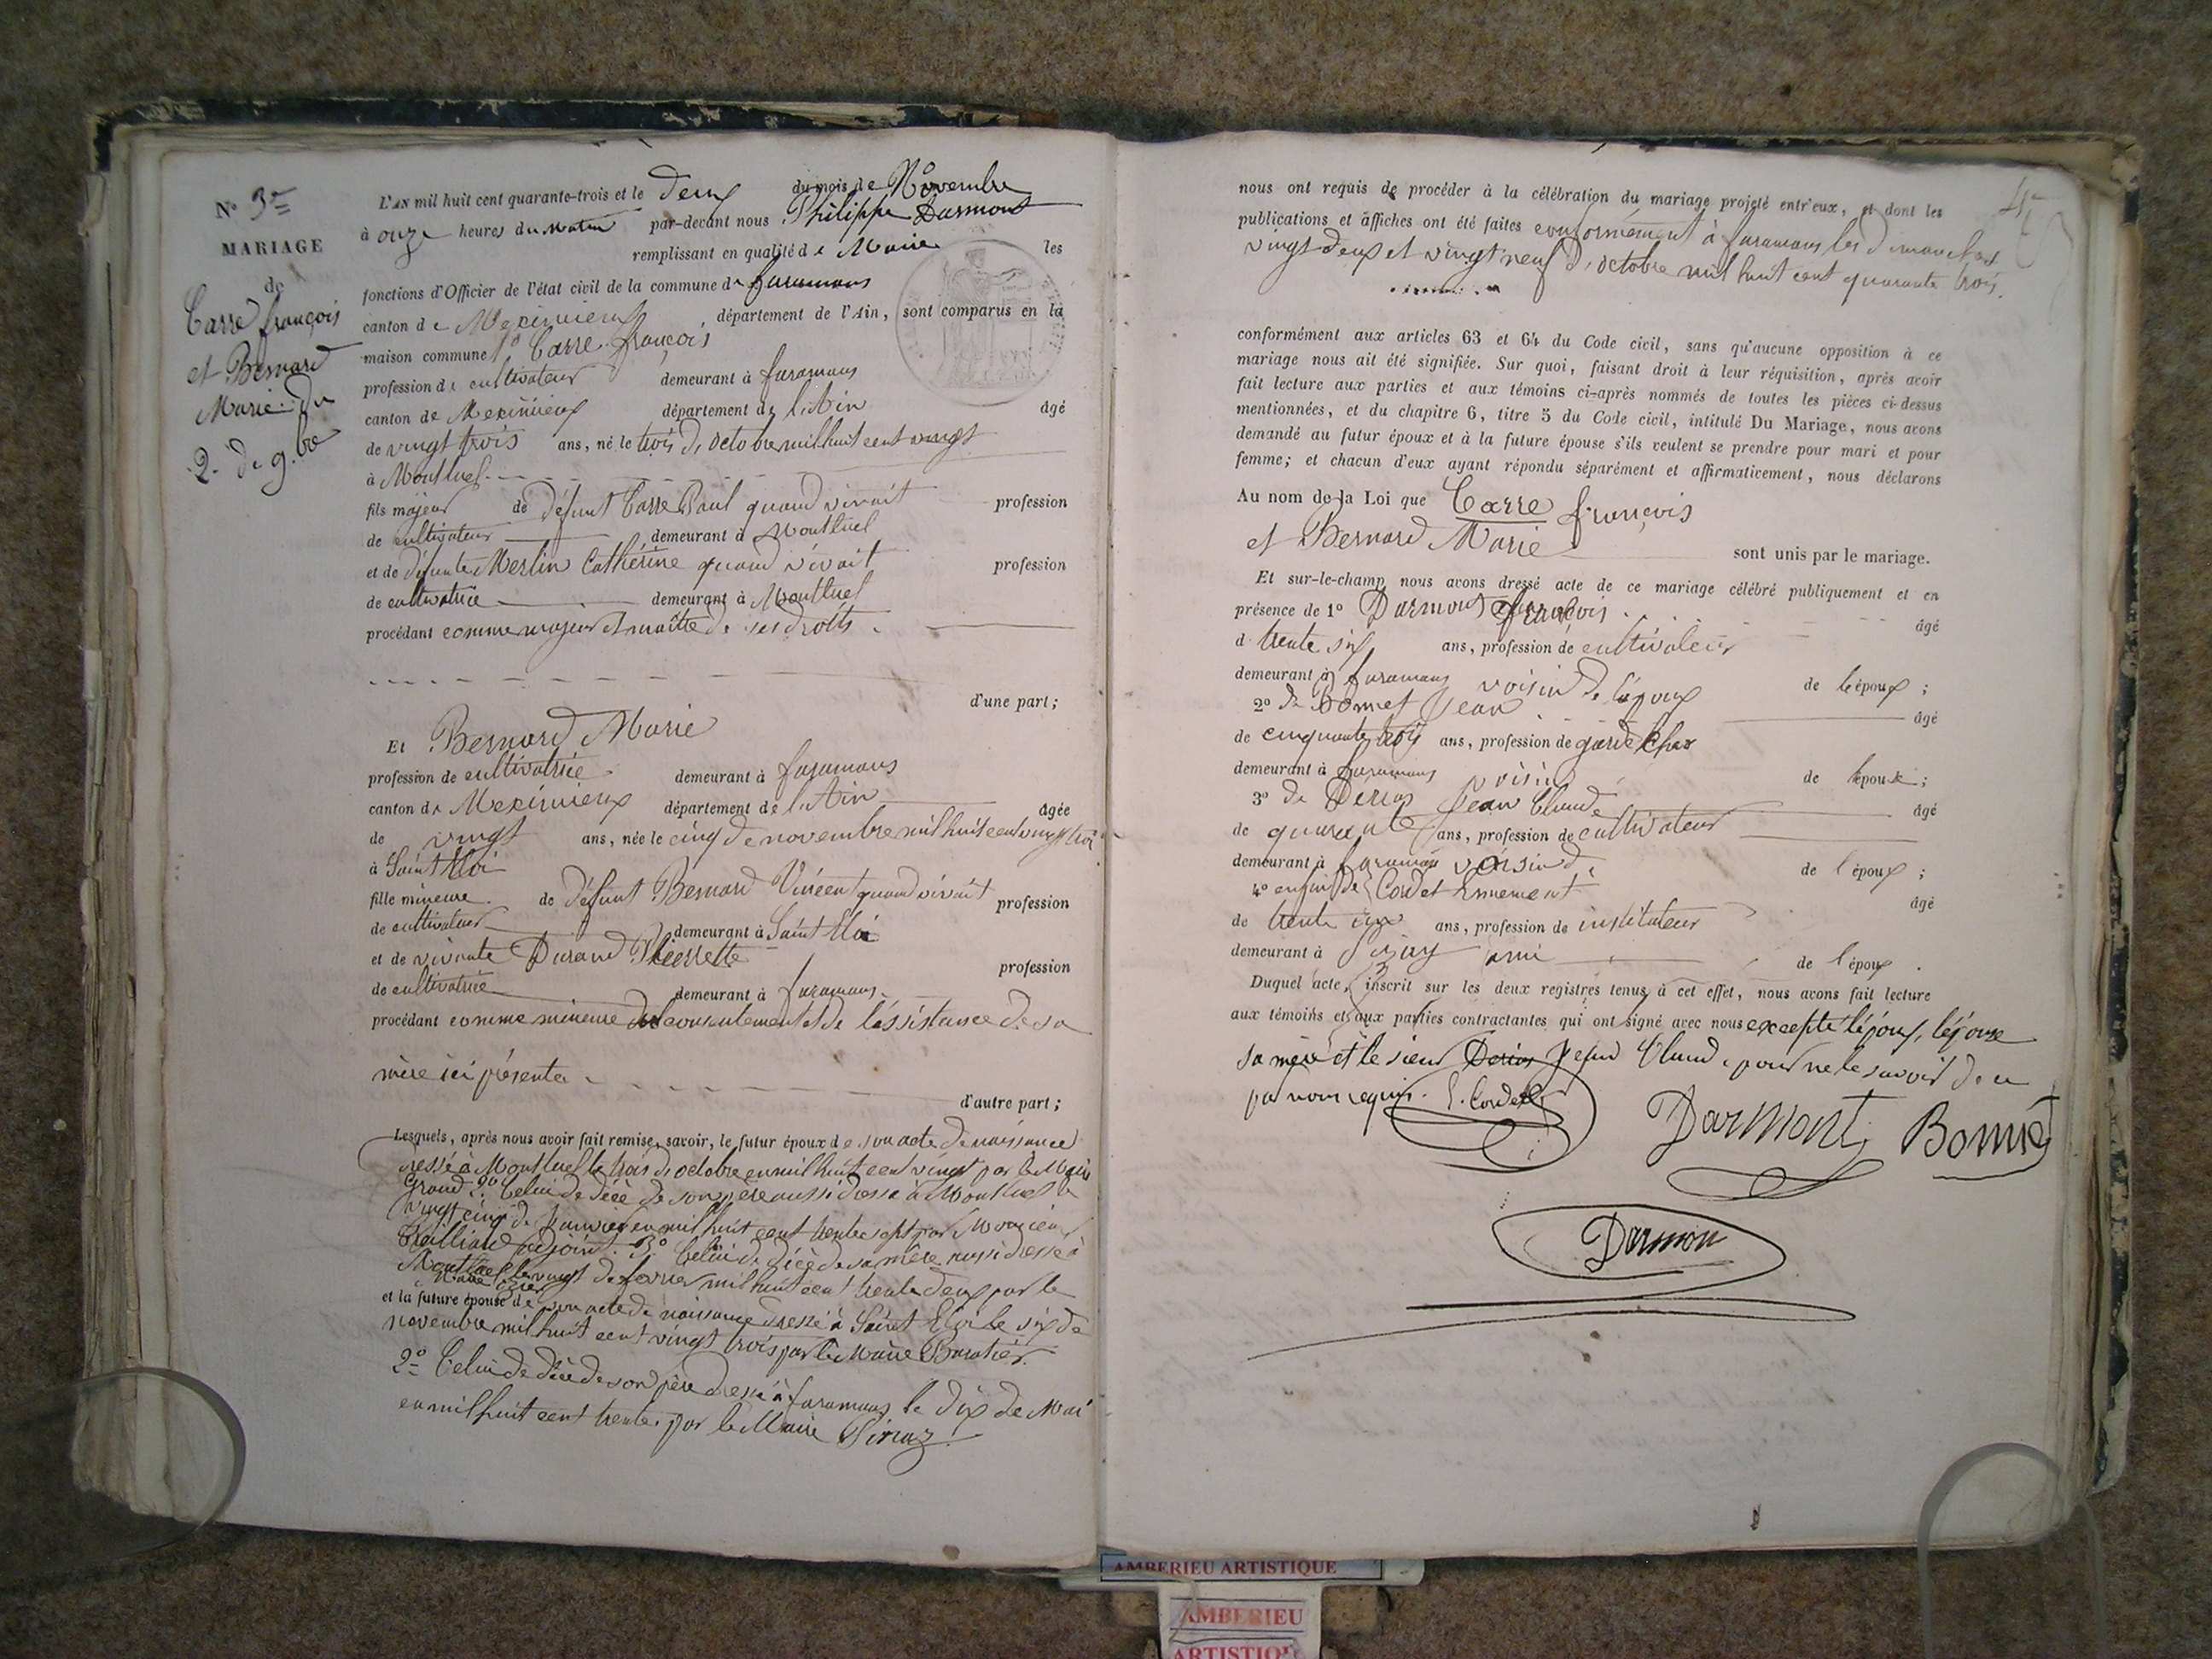 N° 3e
MARIAGE
de
Carre françois
et Bernard
Marie du
2. de 9.bre
L'AN mil huit cent quarante-trois et le deux du mois de Novembre
à onze heures du Matin par-devant nous Philippe Darmont
remplissant en qualité de Maire les
fonctions d'Officier de l'état civil de la commune de faramans
canton de Meximieux département de l'Ain, sont comparus en la
maison commune 1° Carre françois
profession de cultivateur demeurant à faramans
canton de Meximieux département de l'Ain âgé
de vingt trois ans, né le trois d'octobre mil huit cent vingt
à Montluel
fils majeur de défunt Carre Paul quand vivait profession
de cultivateur demeurant à Montluel
et de défunte Merlin Cathérine quand vivait profession
de cultivatrice demeurant à Montluel
procédant comme majeur et maître de ses droits
d'une part;
Et Bernard Marie
profession de cultivatrice demeurant à faramans
canton de Meximieux département de l'Ain âgée
de vingt ans, née le cinq de novembre mil huit cent vingt trois
à Saint Eloi
fille mineure de défunt Bernard Vincent quand vivait profession
de cultivateur demeurant à Saint Eloi
et de vivante Durand Pierrette profession
de cultivatrice demeurant à faramans
procédant comme mineure du consentement et de l'assistance de sa
mère ici présente
d'autre part;
Lesquels, après nous avoir fait remise, savoir, le futur époux de son acte de naissance
dressé à Montluel le trois d'octobre en mil huit cent vingt par le Maire
Grand 2° Celui de décè de son père aussi dressé à Montluel le
vingt cinq de Janvier en mil huit cent trente sept par Monsieur
adjoint. 3° Celui de décè de sa mère aussi dressé à
Montluel le vingt de fevrier mil huit cent trente deux par le
Maire
et la future épouse de son acte de naissance dressé à Saint Eloi le six de
novembre mil huit cent vingt trois par le Maire Baratier
2° Celui de décè de son père dressé à faramans le dix de Mai
en mil huit cent trente par le Maire
nous ont requis de procéder à la célébration du mariage projeté entr'eux, et dont les
publications et affiches ont été faites conformément à faramans les dimanches
vingt deux et vingt neuf d'octobre mil huit cent quarante trois.
conformément aux articles 63 et 64 du Code civil, sans qu'aucune opposition à ce
mariage nous ait été signifiée. Sur quoi, faisant droit à leur réquisition, après avoir
fait lecture aux parties et aux témoins ci-après nommés de toutes les pièces ci-dessus
mentionnées, et du chapitre 6, titre 5 du Code civil, intitulé Du Mariage, nous avons
demandé au futur époux et à la future épouse s'ils veulent se prendre pour mari et pour
femme; et chacun d'eux ayant répondu séparément et affirmativement, nous déclarons
Au nom de la Loi que Carre françois
et Bernard Marie sont unis par le mariage.
Et sur-le-champ nous avons dressé acte de ce mariage célébré publiquement et en
présence de 1° Darmont françois âgé
d trente six ans, profession de cultivateur
demeurant à faramans voisin de l'époux de l'époux;
2° de Bonnet Jean âgé
de cinquante trois ans, profession de garde
demeurant à faramans voisin de l'époux;
3° de Jean Claude âgé
de quarante ans, profession de cultivateur
demeurant à faramans voisin de de l'époux;
4° enfin de Cordet âgé
de trente ans, profession de instituteur
demeurant à ami de l'époux.
Duquel acte, inscrit sur les deux registres tenus à cet effet, nous avons fait lecture
aux témoins et aux parties contractantes qui ont signé avec nous excepté l'époux, l'épouse
sa mère et le sieur Jean Claude pour ne le savoir de ce
par nous requis. Cordet
Darmont Bonnet
Darmon
AMBERIEU ARTISTIQUE
AMBERIEU